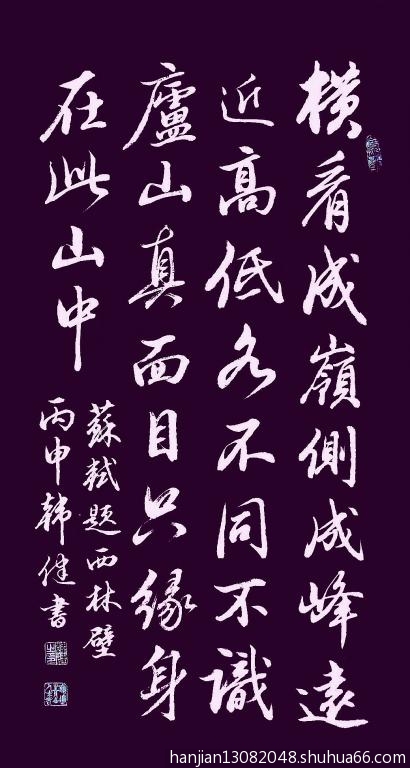 橫看成嶺側成峰遠
近高低各不同不識
廬山真面目只緣身
在此山中
蘇軾題西林壁
丙申韩健書
hanjian13082048.shuhua66.com